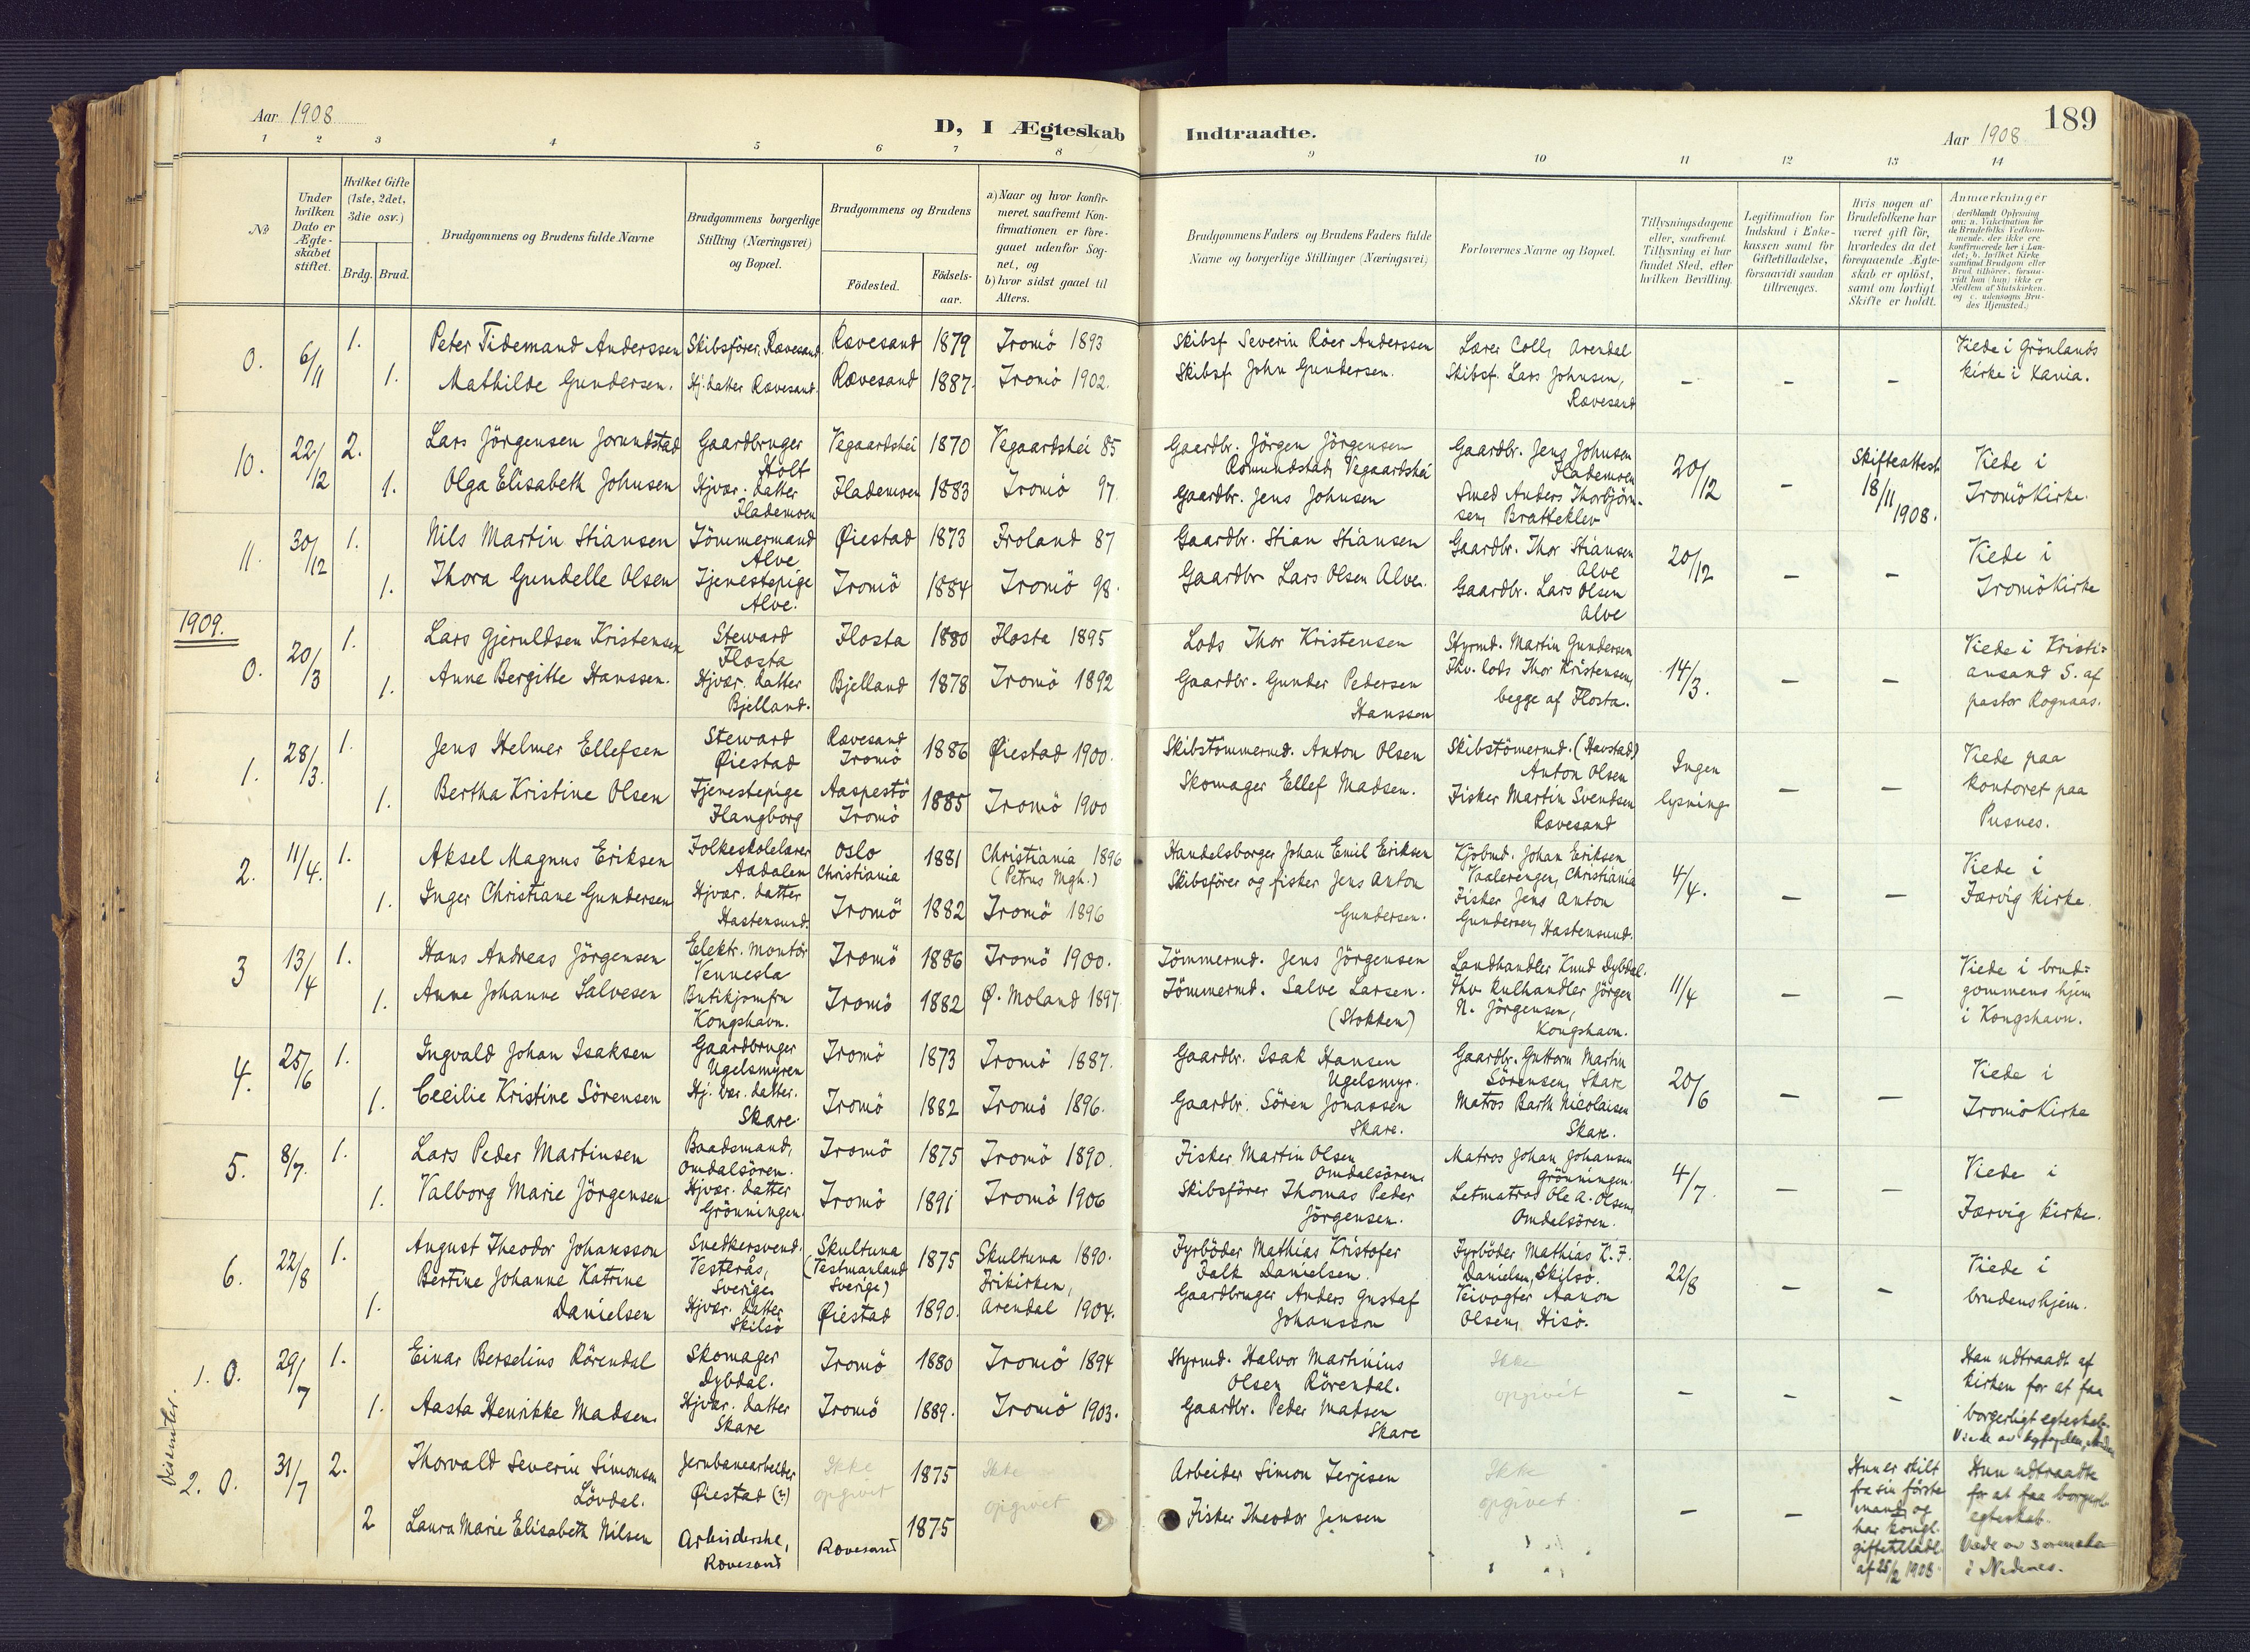 Aar 1908
D, I Ægteskab Indtraadte.
Aar 1908
189
1 2 3 4 5 6 7 8 9 10 11 12 13 14
No
Under hvilken Dato er Ægteskabet stiftet.
Hvilket Gifte (1ste, 2det, 3die osv.)
Brdg. Brud.
Brudgommens og Brudens fulde Navne
Brudgommens borgerlige Stilling (Næringsvei) og Bopæl.
Brudgommens og Brudens
Födested.
Födsels-aar.
a) Naar og hvor konfirmeret, saafremt Konfirmationen er foregaaet udenfor Sognet, og
b) hvor sidst gaaet til Alters.
Brudgommens Faders og Brudens Faders fulde Navne og borgerlige Stillinger (Næringsvei)
Forlovernes Navne og Bopæl.
Tillysningsdagene eller, saafremt Tillysning ei har fundet Sted, efter hvilken Bevilling.
Legitimation for Indskud i Enkekassen samt for Giftetilladelse, forsaavidt saadan tiltrænges.
Hvis nogen af Brudefolkene har været gift för, hvorledes da det foregaaende Ægteskab er oplöst, samt om lovligt Skifte er holdt.
Anmærkninger
0. 6/11 1. Peter Tidemand Anderssen Skibsförer. Rævesand. Rævesand 1879 Tromö 1893 Skibsf Severin Röer Anderssen Lærer Coll, Arendal Viede i Grönlands
1. Mathilde Gundersen. Hj. datter Rævesand. Rævesand 1887. Tromö 1902. Skibsf John Gundersen. Skibsf. Lars Johnsen, Rævesand – – – kirke i Xania.
10. 22/12 2. Lars Jörgensen Jorundstad Gaardbruger Holt Vegaardshei 1870 Vegaardshei 85 Gaardbr. Jörgen Jörgensen Romundstad, Vegaardshei Gaardbr. Jens Johnsen Flademoen 20/12 – Skifteattest 18/11 1908. Viede i
1. Olga Elisabeth Johnsen Hjvær. datter Flademoen Flademoen 1883 Tromö 97. Gaardbr. Jens Johnsen Smed Anders Thorbjörnsen, Bratteklev Tromö Kirke.
11. 30/12 1. Nils Martin Stiansen Tömmermand Alve Øiestad 1873 Froland 87 Gaardbr. Stian Stiansen Gaardbr. Thor Stiansen Alve 20/12 – – Viede i
1. Thora Gundelle Olsen Tjenestepige Alve. Tromö 1884 Tromö 98. Gaardbr Lars Olsen Alve. Gaardbr. Lars Olsen Alve Tromö Kirke
1909.
0. 20/3 1. Lars Gjeruldsen Kristensen Steward Flosta Flosta 1880 Flosta 1895 Lods Thor Kristensen Styrmd. Martin Gundersen 14/3. – – Viede i Kristi=
1. Anne Bergitte Hanssen. Hjvær. datter Bjelland. Bjelland 1878 Tromö 1892 Gaardbr. Gunder Pedersen Hanssen Thv. Lods Thor Kristensen, begge af Flosta. ansand S. af pastor Rognaas.
1. 28/3. 1. Jens Helmer Ellefsen Steward Øiestad Rævesand Tromö 1886 Øiestad 1900. Skibstömmermd. Anton Olsen Skibstömermd. (Havstad) Anton Olsen Ingen lysning – – Viede paa
1. Bertha Kristine Olsen Tjenestepige Haugborg Aaspestö Tromö 1885 Tromö 1900 Skomager Ellef Madsen. Fisker Martin Svendsen Rævesand kontoret paa Pusnes.
2. 11/4. 1. Aksel Magnus Eriksen Folkeskolelærer Aadalen Oslo Christiania 1881 Christiania 1896 (Petrus Mgh.) Handelsborger Johan Emil Eriksen Kjöbmd. Johan Eriksen Vaalerengen, Christiania 4/4. – – Viede i
1. Inger Christiane Gundersen Hjvær. datter Hastensund. Tromö 1882 Tromö 1896 Skibsförer og fisker Jens Anton Gundersen. Fisker Jens Anton Gundersen, Hastensund. Færvig kirke.
3 13/4 1. Hans Andreas Jörgensen Elektr. montör Vennesla Tromö 1886 Tromö 1900. Tömmermd. Jens Jörgensen Landhandler Knud Dybdal. 11/4 – – Viede i brud=
1. Anne Johanne Salvesen Butikjomfru Kongshavn. Tromö 1882 Ø. Moland 1897. Tömmermd. Salve Larsen. (Stokken) Thv. kulhandler Jörgen N. Jörgensen, Kongshavn. gommens hjem i Kongshavn.
4. 25/6 1. Ingvald Johan Isaksen Gaardbruger Ugelsmyren Tromö 1873 Tromö 1887. Gaardbr. Isak Hansen Ugelsmyr. Gaardbr. Guttorm Martin Sörensen, Skare 20/6 – – Viede i
1. Cecilie Kristine Sörensen Hj. vær. datter. Skare. Tromö 1882 Tromö 1896. Gaardbr. Sören Jonassen Skare. Matros Barth Nicolaisen Skare. Tromö Kirke
5. 8/7. 1. Lars Peder Martinsen Baadsmand, Omdalsören. Tromö 1875 Tromö 1890. Fisker Martin Olsen Omdalsören. Matros Johan Johansen Grönningen. 4/7. – – Viede i
1. Valborg Marie Jörgensen Hjvær. datter Grönningen Tromö 1891 Tromö 1906 Skibsförer Thomas Peder Jörgensen. Letmatros Ole A. Olsen, Omdalsören. Færvig kirke.
6. 22/8 1. August Theodor Johansson Snedkersvend. Vesterås, Sverige Skultuna (Vestmanland Sverige) 1875 Skultuna 1890. Fyrböder Mathias Kristofer Falk Danielsen. Fyrböder Mathias K. F. Danielsen, Skilsö. 22/8 – – Viede i
1. Bertine Johanne Katrine Danielsen Hjvær. datter Skilsö Øiestad 1890. Frikirken, Arendal 1904. Gaardbruger Anders Gustaf Johansson Veivogter Aanon Olsen, Hisö. brudenshjem.
Dissenter.
1. 0. 29/7 1. Einar Berselius Rörendal Skomager Dybdal. Tromö 1880 Tromö 1894 Styrmd. Halvor Martinius Olsen Rörendal. Ikke opgivet – – – Han udtraadt af kirken for at faa
1. Aasta Henrikke Madsen. Hjvær. datter Skare Tromö 1889. Tromö 1903. Gaardbr. Peder Madsen Skare borgerligt egteskab. Viede av
2. 0. 31/7 2. Thorvald Severin Simonsen Lövdal. Jernbanearbeider Øiestad (?) Ikke opgivet 1875 Ikke opgivet Arbeider Simon Terjesen Ikke opgivet – – Hun er skilt fra sin förste mand og har kongl. giftetillad. af 25/2 1908. Hun udtraadte for at faa borgerl. egteskab.
2 Laura Marie Elisabeth Nilsen Arbeiderske, Rovesand Rovesand 1875 Fisker Theodor Jensen Viede av i Nedenes.